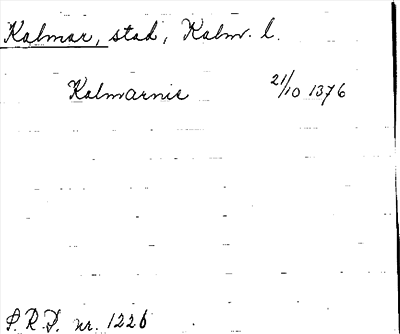 Kalmar, stad, Kalm. l.
Kalmarnie 21/10 1376
S.R.P. nr. 1226